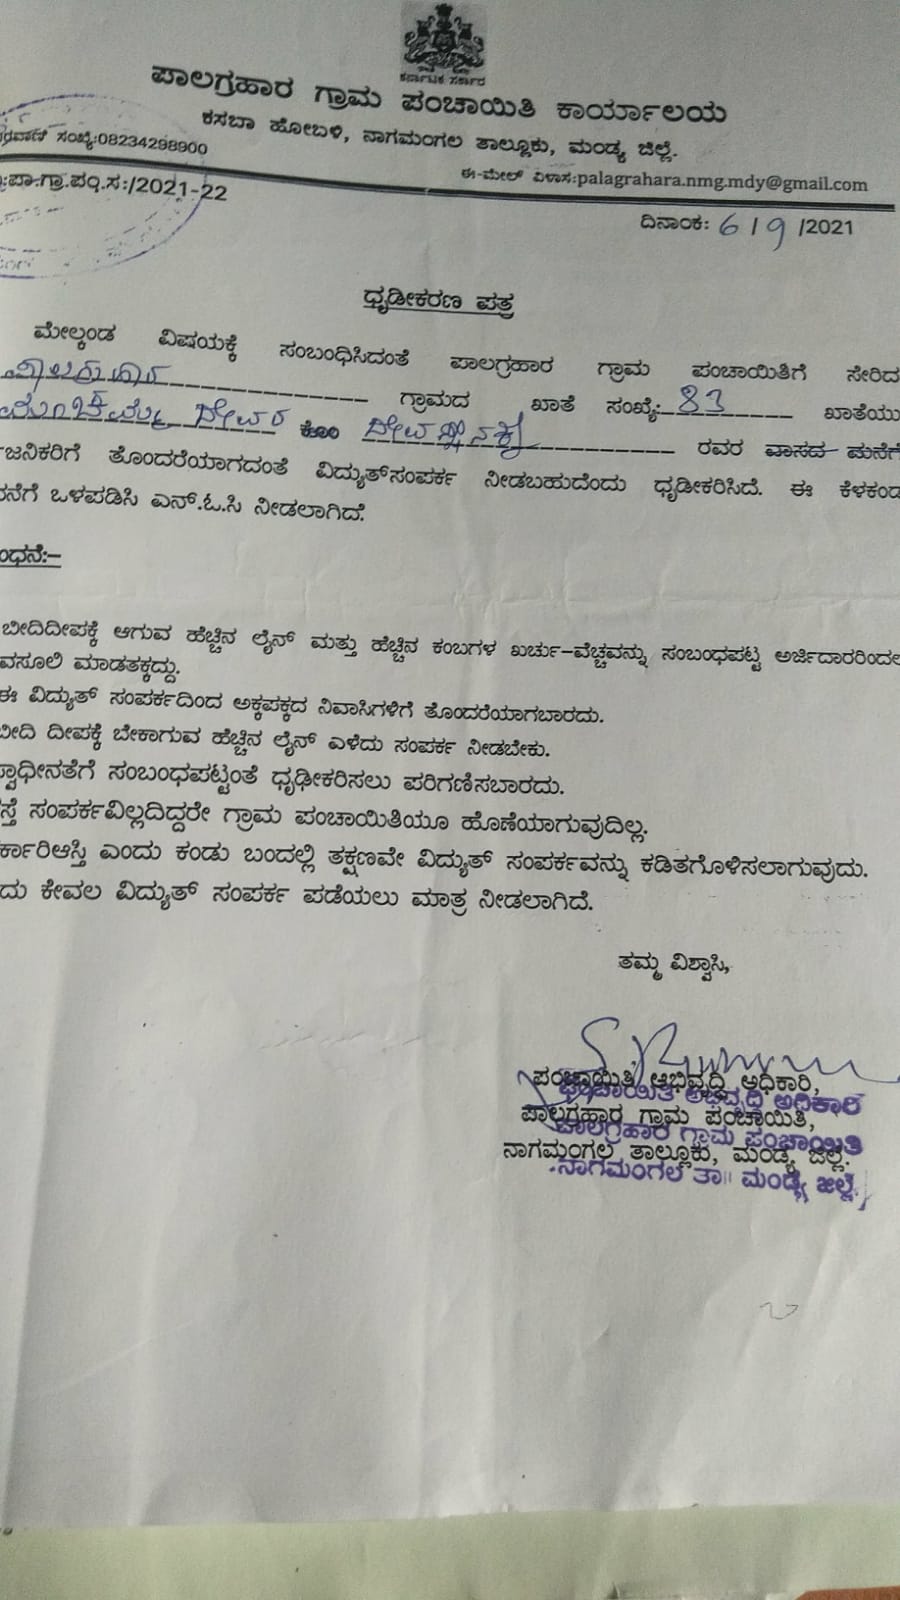 ಕರ್ನಾಟಕ ಸರ್ಕಾರ
ಪಾಲಗ್ರಹಾರ ಗ್ರಾಮ ಪಂಚಾಯಿತಿ ಕಾರ್ಯಾಲಯ
ಕಸಬಾ ಹೋಬಳಿ, ನಾಗಮಂಗಲ ತಾಲ್ಲೂಕು, ಮಂಡ್ಯ ಜಿಲ್ಲೆ.
ರವಾಣಿ ಸಂಖ್ಯೆ:08234298900
ಈ-ಮೇಲ್ ವಿಳಾಸ:palagrahara.nmg.mdy@gmail.com
:ಪಾ.ಗ್ರಾ.ಪಂ.ಸ:/2021-22
ದಿನಾಂಕ: 6/9/2021
ಧೃಡೀಕರಣ ಪತ್ರ
ಮೇಲ್ಕಂಡ ವಿಷಯಕ್ಕೆ ಸಂಬಂಧಿಸಿದಂತೆ ಪಾಲಗ್ರಹಾರ ಗ್ರಾಮ ಪಂಚಾಯಿತಿಗೆ ಸೇರಿದ
ಗ್ರಾಮದ ಖಾತೆ ಸಂಖ್ಯೆ: 83 ಖಾತೆಯು
ದೇವರ ಕೋಂ ರವರ ವಾಸದ ಮನೆಗೆ
ಜನಿಕರಿಗೆ ತೊಂದರೆಯಾಗದಂತೆ ವಿದ್ಯುತ್‌ಸಂಪರ್ಕ ನೀಡಬಹುದೆಂದು ಧೃಡೀಕರಿಸಿದೆ. ಈ ಕೆಳಕಂಡ
ನೆಗೆ ಒಳಪಡಿಸಿ ಎನ್.ಓ.ಸಿ ನೀಡಲಾಗಿದೆ.
ಂಧನೆ:–
ಬೀದಿದೀಪಕ್ಕೆ ಆಗುವ ಹೆಚ್ಚಿನ ಲೈನ್ ಮತ್ತು ಹೆಚ್ಚಿನ ಕಂಬಗಳ ಖರ್ಚು–ವೆಚ್ಚವನ್ನು ಸಂಬಂಧಪಟ್ಟ ಅರ್ಜಿದಾರರಿಂದಲೇ
ವಸೂಲಿ ಮಾಡತಕ್ಕದ್ದು.
ಈ ವಿದ್ಯುತ್ ಸಂಪರ್ಕದಿಂದ ಅಕ್ಕಪಕ್ಕದ ನಿವಾಸಿಗಳಿಗೆ ತೊಂದರೆಯಾಗಬಾರದು.
ಬೀದಿ ದೀಪಕ್ಕೆ ಬೇಕಾಗುವ ಹೆಚ್ಚಿನ ಲೈನ್ ಎಳೆದು ಸಂಪರ್ಕ ನೀಡಬೇಕು.
ಸ್ವಾಧೀನತೆಗೆ ಸಂಬಂಧಪಟ್ಟಂತೆ ಧೃಢೀಕರಿಸಲು ಪರಿಗಣಿಸಬಾರದು.
ಸ್ತೆ ಸಂಪರ್ಕವಿಲ್ಲದಿದ್ದರೇ ಗ್ರಾಮ ಪಂಚಾಯಿತಿಯೂ ಹೊಣೆಯಾಗುವುದಿಲ್ಲ.
ರ್ಕಾರಿಆಸ್ತಿ ಎಂದು ಕಂಡು ಬಂದಲ್ಲಿ ತಕ್ಷಣವೇ ವಿದ್ಯುತ್ ಸಂಪರ್ಕವನ್ನು ಕಡಿತಗೊಳಿಸಲಾಗುವುದು.
ದು ಕೇವಲ ವಿದ್ಯುತ್ ಸಂಪರ್ಕ ಪಡೆಯಲು ಮಾತ್ರ ನೀಡಲಾಗಿದೆ.
ತಮ್ಮ ವಿಶ್ವಾಸಿ,
ಪಂಚಾಯಿತಿ ಅಭಿವೃದ್ಧಿ ಅಧಿಕಾರಿ,
ಪಂಚಾಯಿತಿ ಅಭಿವೃದ್ಧಿ ಅಧಿಕಾರಿ
ಪಾಲಗ್ರಹಾರ ಗ್ರಾಮ ಪಂಚಾಯಿತಿ,
ಪಾಲಗ್ರಹಾರ ಗ್ರಾಮ ಪಂಚಾಯಿತಿ
ನಾಗಮಂಗಲ ತಾಲ್ಲೂಕು, ಮಂಡ್ಯ ಜಿಲ್ಲೆ.
ನಾಗಮಂಗಲ ತಾ|| ಮಂಡ್ಯ ಜಿಲ್ಲೆ.